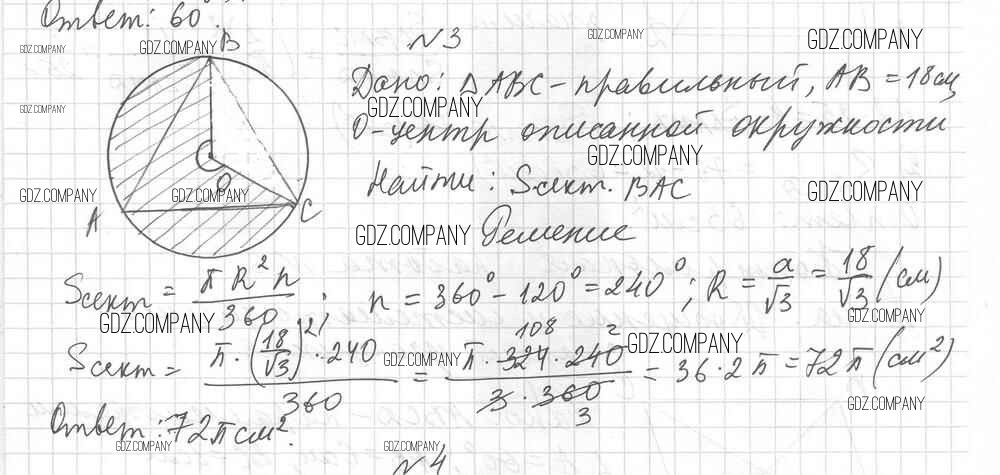 Ответ: 60°.
GDZ.COMPANY GDZ.COMPANY B N3 GDZ.COMPANY GDZ.COMPANY
Дано: △ABC – правильный, AB = 18 см
GDZ.COMPANY GDZ.COMPANY
O – центр описанной окружности
GDZ.COMPANY
O
Найти: Sсект. BAC
GDZ.COMPANY GDZ.COMPANY GDZ.COMPANY
A C
GDZ.COMPANY Решение
Sсект = πR²n / 360 ; n = 360° – 120° = 240°; R = a/√3 = 18/√3 (см)
GDZ.COMPANY GDZ.COMPANY
Sсект = π · (18/√3)² · 240 / 360 = π · 324 · 240 / 3 · 360 = 36 · 2π = 72π (см²)
108 2
3
GDZ.COMPANY GDZ.COMPANY
GDZ.COMPANY
Ответ: 72π см².
GDZ.COMPANY GDZ.COMPANY
N4